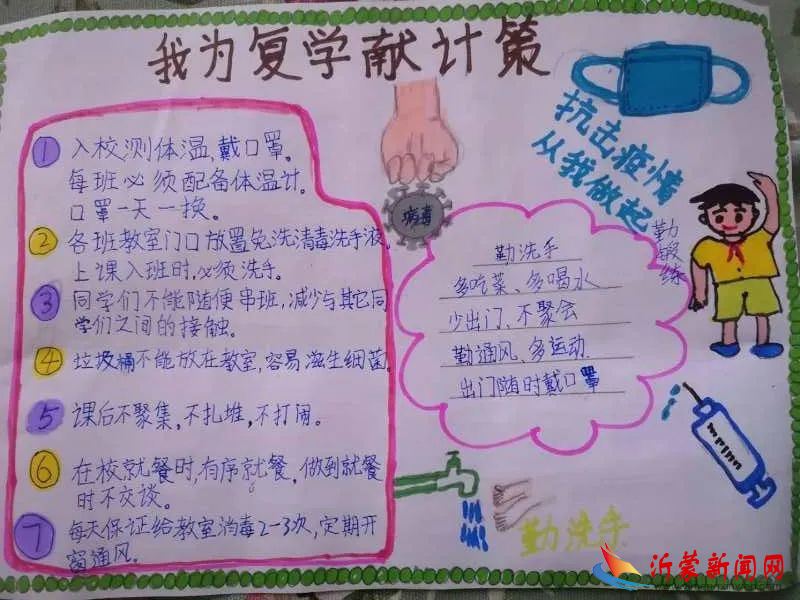 我为复学献计策
1 入校,测体温,戴口罩。
每班必须配备体温计.
口罩一天一换。
2 各班教室门口放置免洗消毒洗手液.
上课入班时,必须洗手。
3 同学们不能随便串班,减少与其它同
学们之间的接触。
4 垃圾桶不能放在教室,容易滋生细菌.
5 课后不聚集,不扎堆,不打闹。
6 在校就餐时,有序就餐,做到就餐
时不交谈。
7 每天保证给教室消毒2-3次,定期开
窗通风。
病毒
抗击疫情
从我做起
勤锻练
勤洗手
多吃菜、多喝水
少出门、不聚会
勤通风、多运动.
出门随时戴口罩
勤洗手
沂蒙新闻网